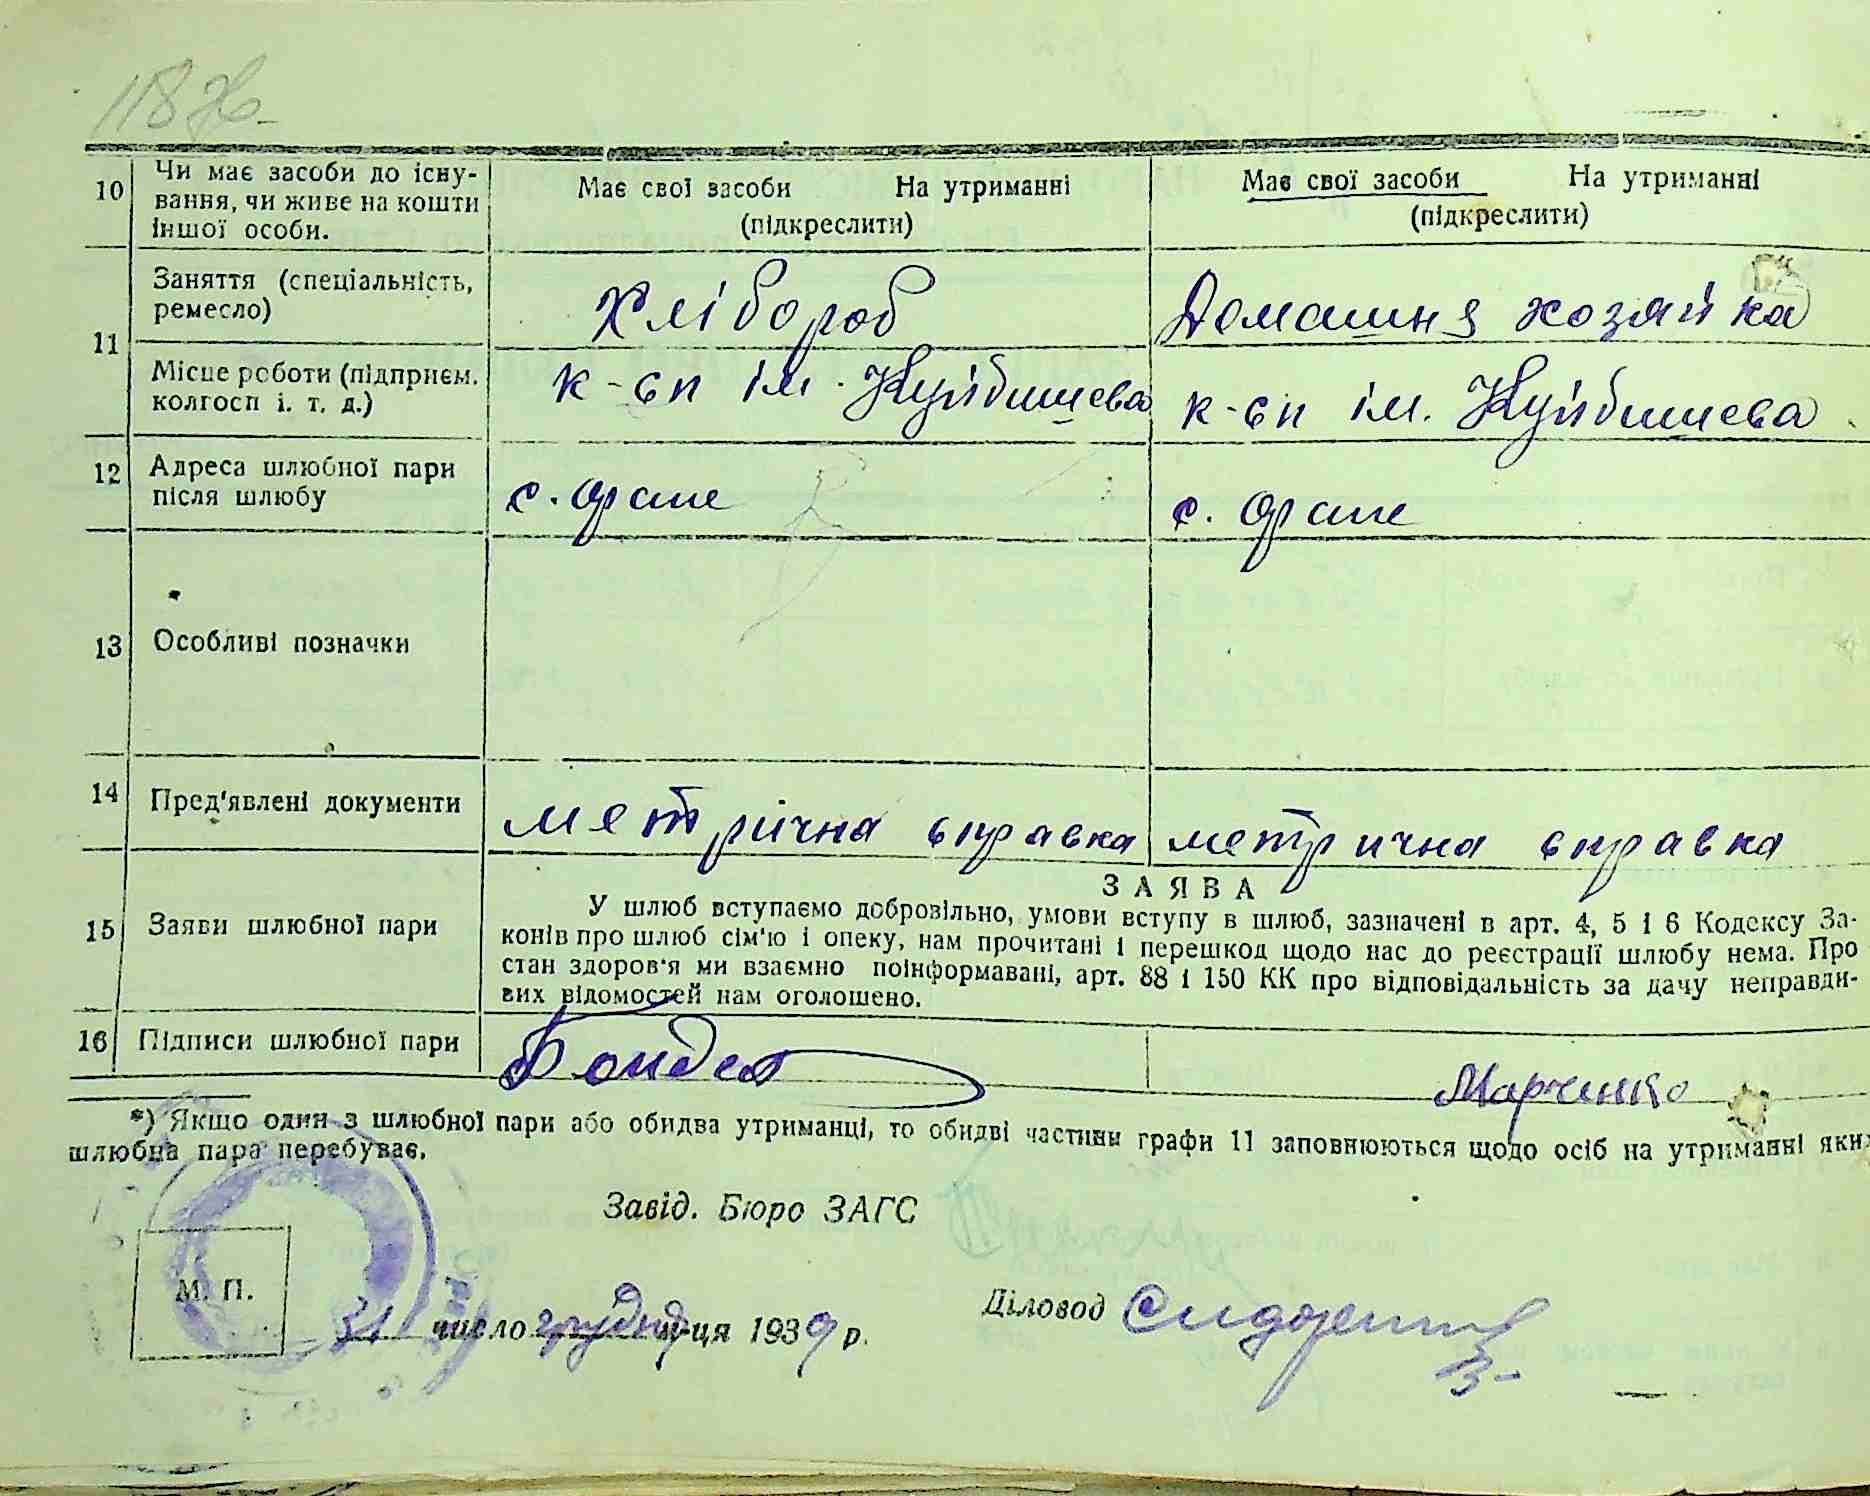 118
10 Чи має засоби до існу-
вання, чи живе на кошти
іншої особи.
Має свої засоби На утриманні
(підкреслити)
Має свої засоби На утриманні
(підкреслити)
11
Заняття (спеціальність,
ремесло)
Хлібороб
Домашня хозяйка
Місце роботи (підприєм.
колгосп і. т. д.)
к-сп ім. Куйбишева
к-сп ім. Куйбишева
12 Адреса шлюбної пари
після шлюбу
с.
с.
13 Особливі позначки
14 Пред'явлені документи
метрична справка
метрична справка
15 Заяви шлюбної пари
ЗАЯВА
У шлюб вступаємо добровільно, умови вступу в шлюб, зазначені в арт. 4, 5 і 6 Кодексу За-
конів про шлюб сім'ю і опеку, нам прочитані і перешкод щодо нас до реєстрації шлюбу нема. Про
стан здоров'я ми взаємно поінформавані, арт. 88 і 150 КК про відповідальність за дачу неправди-
вих відомостей нам оголошено.
16 Підписи шлюбної пари
Марченко
*) Якщо один з шлюбної пари або обидва утриманці, то обидві частини графи 11 заповнюються щодо осіб на утриманні яких
шлюбна пара перебуває.
Завід. Бюро ЗАГС
М. П.
31 число грудня м-ця 1939 р.
Діловод